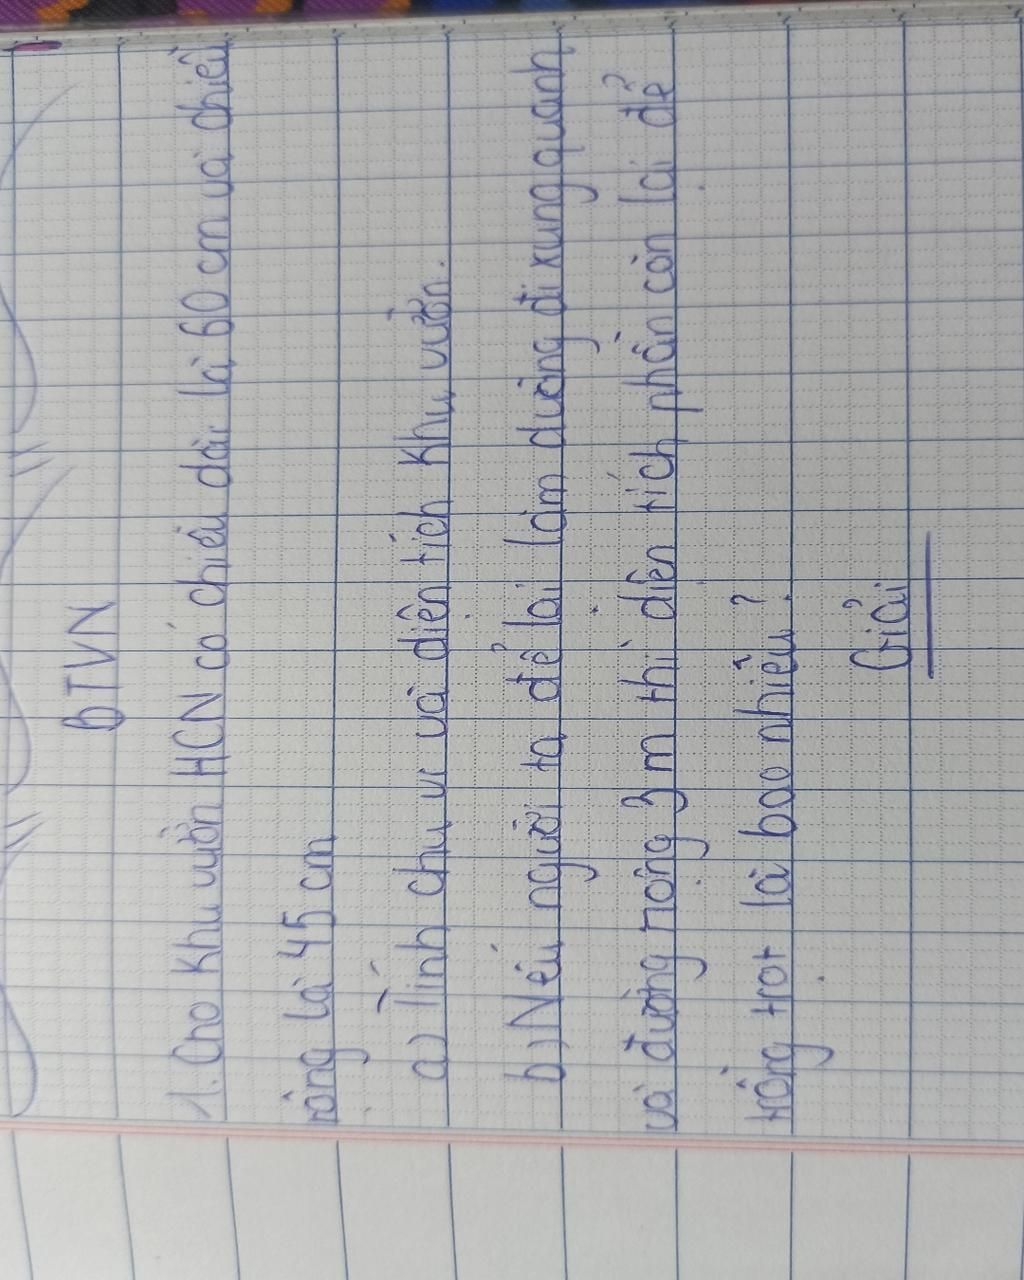 BTVN
1. Cho Khu vườn HCN có chiều dài là 60 cm và chiều
rộng là 45 cm
a) Tính chu vi và diện tích Khu vườn.
b) Nếu người ta để lại làm đường đi xung quanh
và đường rộng 3 m thì diện tích phần còn lại để
trồng trọt là bao nhiêu?
Giải